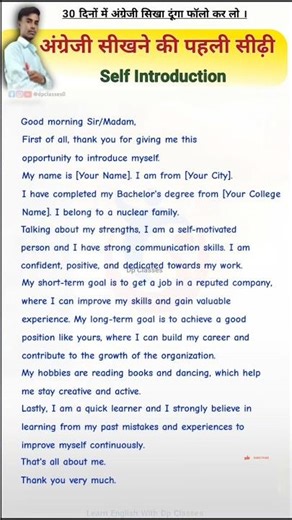 30 दिनों में अंग्रेजी सिखा दूंगा फॉलो कर लो ।
अंग्रेजी सीखने की पहली सीढ़ी
Self Introduction
@dpclasses8
Good morning Sir/Madam,
First of all, thank you for giving me this
opportunity to introduce myself.
My name is [Your Name]. I am from [Your City].
I have completed my Bachelor's degree from [Your College
Name]. I belong to a nuclear family.
Talking about my strengths, I am a self-motivated
person and I have strong communication skills. I am
confident, positive, and dedicated towards my work.
Dp Classes
My short-term goal is to get a job in a reputed company,
where I can improve my skills and gain valuable
experience. My long-term goal is to achieve a good
position like yours, where I can build my career and
contribute to the growth of the organization.
My hobbies are reading books and dancing, which help
me stay creative and active.
Lastly, I am a quick learner and I strongly believe in
learning from my past mistakes and experiences to
improve myself continuously.
That's all about me.
Thank you very much.
Learn English With Dp Classes